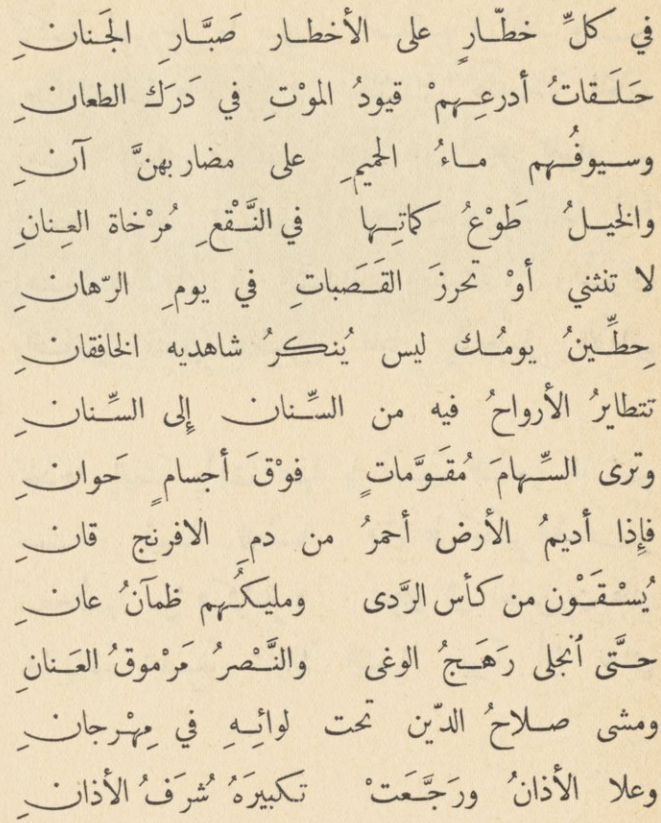 في كلِّ خطّارٍ على الأخطار صَبَّارِ الجَنانِ
حَلَقاتُ أدرعِهمْ قيودُ الموْتِ في دَرَكْ الطعانِ
وسيوفُهم ماءُ الحميمِ على مضاربهنَّ آنِ
والخيلُ طَوْعُ كماتِها في النَّقْعِ مُرْخاة العِنانِ
لا تنثني أوْ تحرزَ القَصَباتِ في يومِ الرّهانِ
حِطِّينُ يومُك ليس يُنكرُ شاهديه الخافقانِ
تتطايرُ الأرواحُ فيه من السِّنان إِلى السِّنانِ
وترى السِّهامَ مُقَوَّماتٍ فوْقَ أجسامٍ حَوانِ
فإِذا أديمُ الأرض أحمرُ من دمِ الافرنج قانِ
يُسْقَوْن من كأس الرَّدى ومليكُهم ظمآنُ عانِ
حتَّى ٱنجلى رَهَجُ الوغى والنَّصْرُ مَرْموقُ العَنانِ
ومشى صلاحُ الدّين تحت لوائِهِ في مِهْرجانِ
وعلا الأذانُ ورَجَّعَتْ تكبيرَهُ شُرَفُ الأذانِ